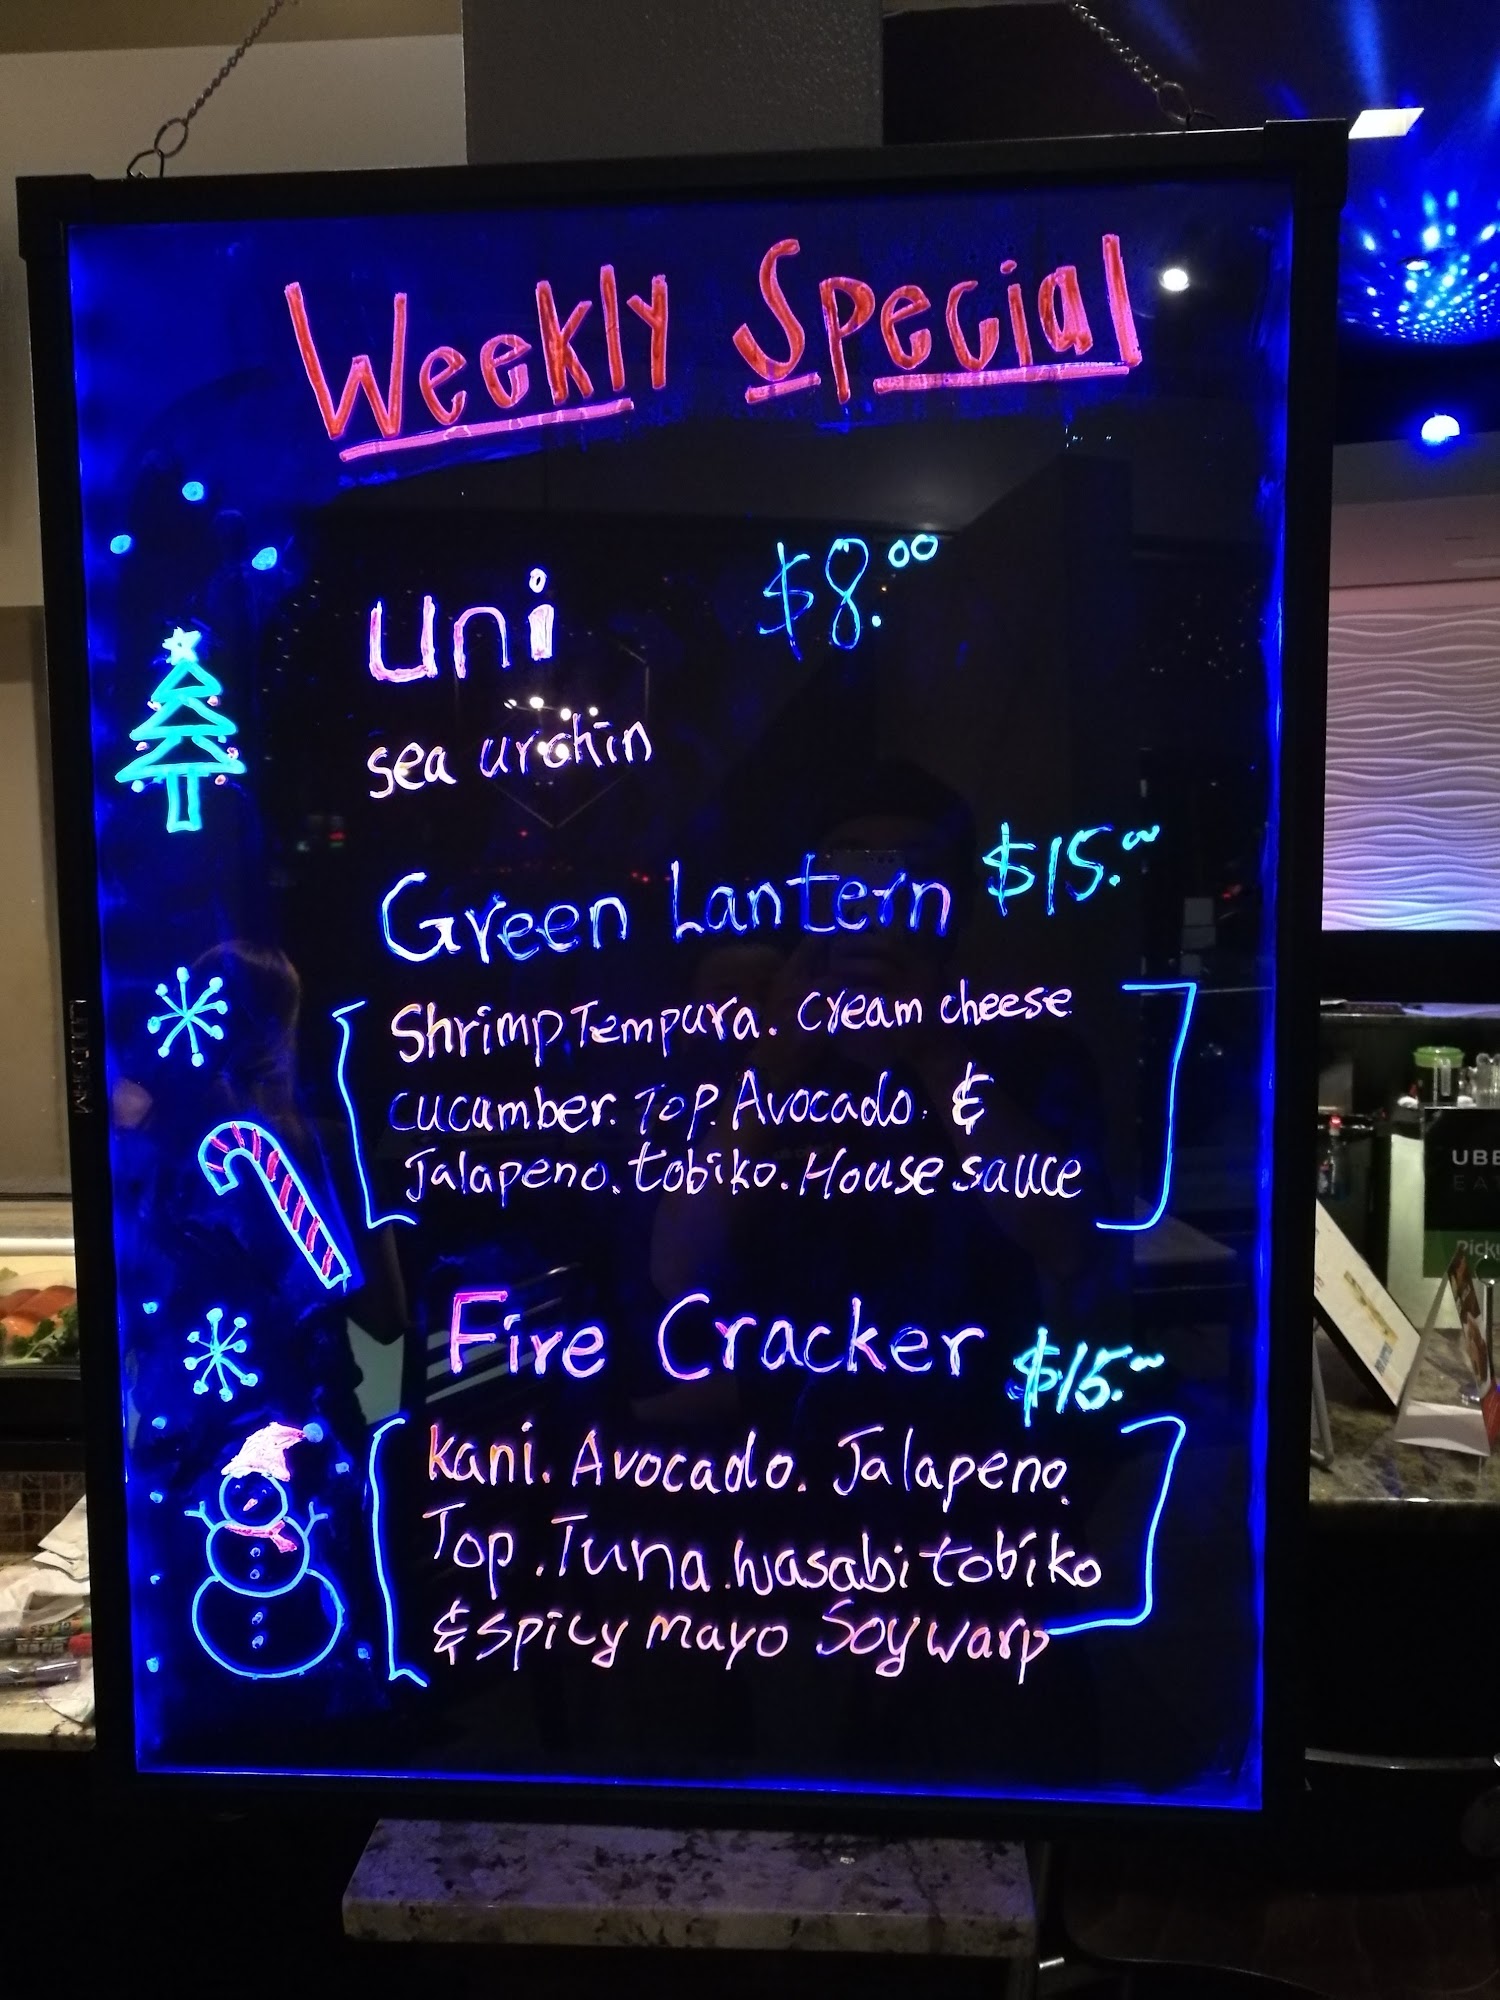 Weekly Special
Uni $8.00
sea urchin
Green Lantern $15.00
Shrimp Tempura. Cream cheese
cucumber. Top. Avocado. &
Jalapeno. tobiko. House sauce
Fire Cracker $15.00
Kani. Avocado. Jalapeno.
Top. Tuna. Wasabi tobiko
& Spicy Mayo Soy warp
UBE
EA
Pick